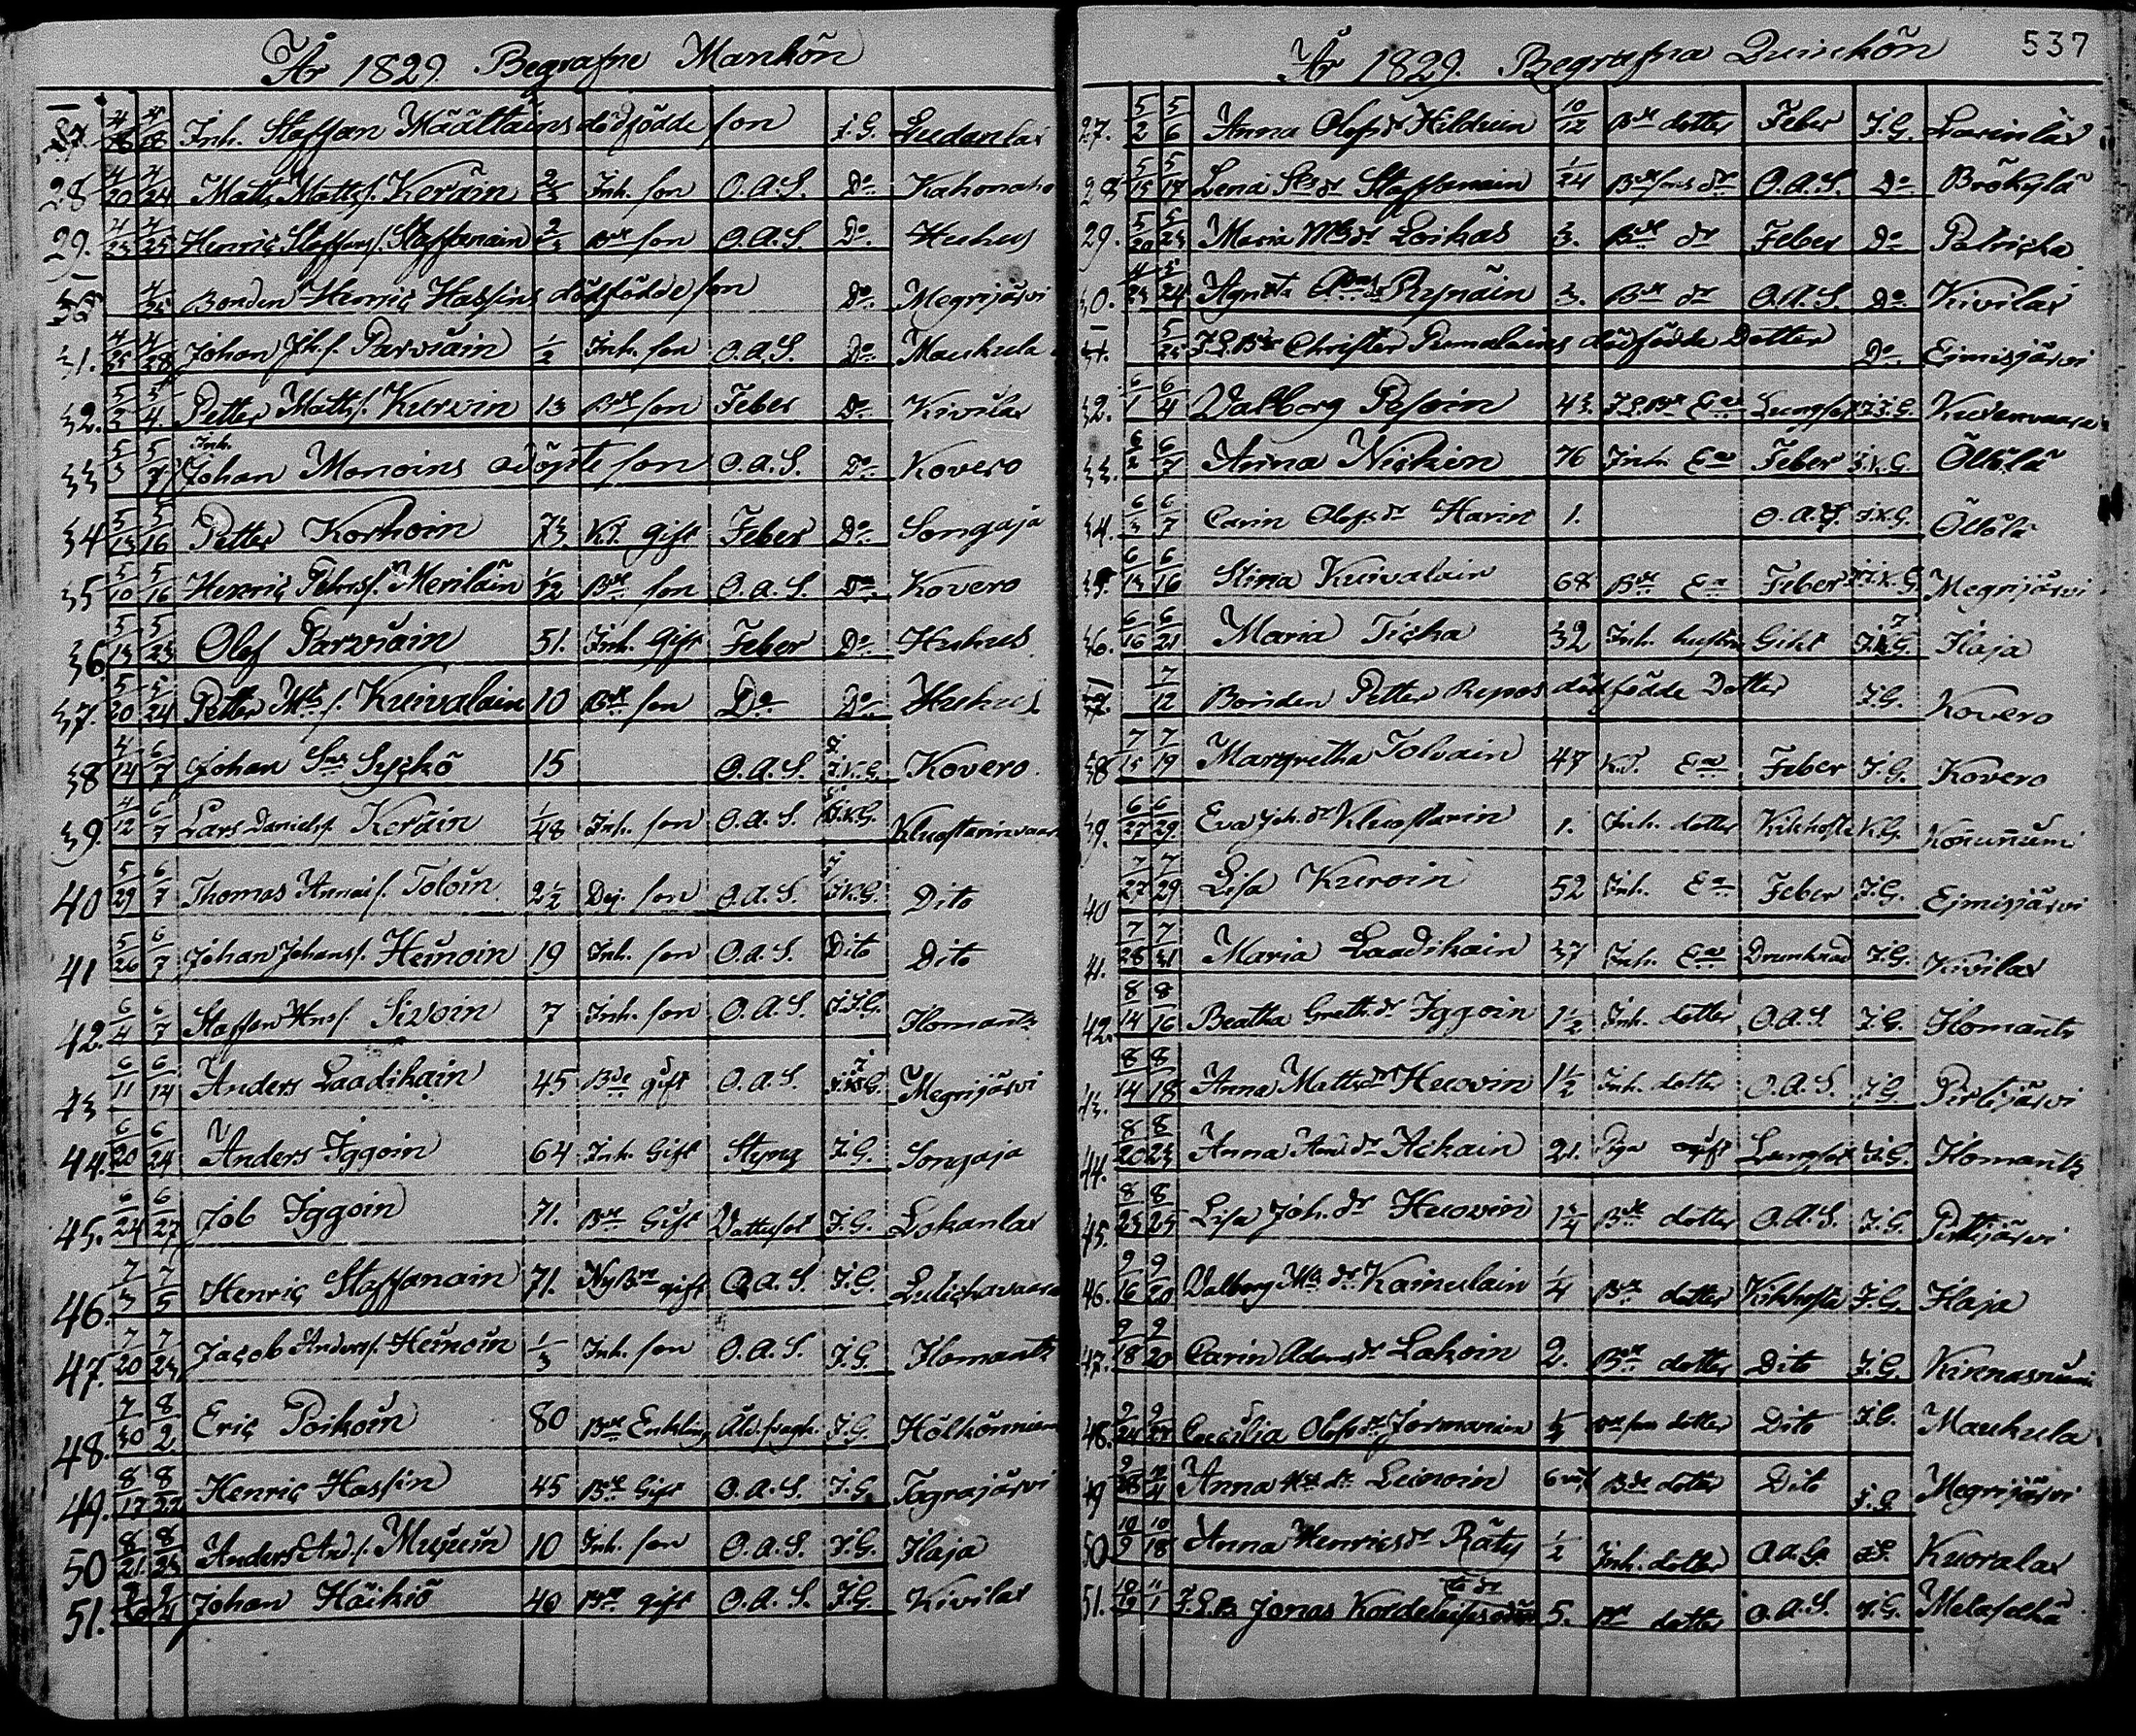 År 1829. Begrafne Mankön
27. 4/18 4/18 Inh. Staffan Määttäins dödfödde son I.G. Ludanlax
28 4/20 4/24 Matts Matts s. Keräin Inh. son O.A.S. Do Kahonaho
29. 4/23 4/25 Henric Staffans s. Staffanain 2/3 Bde son O.A.S. Do Huhus
30 4/25 Bonden Henric Hassins dödfödde son Do Megrijärvi
31. 4/25 4/28 Johan Joh. s. Parviain 1/2 Inh. son O.A.S. Do Maukula
32. 5/2 5/4 Petter Matts s. Kurvin 13 Bde son Feber Do Kivilax
33 5/3 5/7 Inh. Johan Monoins odöpte son O.A.S. Do Kovero
34 5/13 5/16 Petter Korhoin 73. Kt. gift Feber Do Songaja
35 5/10 5/16 Henric Peters s. Meriläin 1/12 Bde son O.A.S. Do Kovero
36 5/13 5/23 Olof Parviain 51. Inh. Gift Feber Do Huhus
37. 5/20 5/24 Petter Mts s. Kuivalain 10 Bde son Do Do Huhus
38 4/14 6/7 Johan Syckö 15 O.A.S. I.K.G. Kovero
39. 4/12 6/7 Lars Daniels s. Keräin 1/48 Inh. son O.A.S. I.K.G. Kluostarinvaara
40 5/29 6/7 Thomas Annas s. Toloin 2 1/2 Dej. son O.A.S. I.K.G. Dito
41 5/26 6/7 Johan Johans s. Heinoin 19 Inh. son O.A.S. Dito Dito
42. 6/4 6/7 Staffan Hns s. Sivoin 7 Inh. son O.A.S. I.I.G. Ilomants
43 6/11 6/14 Anders Laadikain 45 Bde gift O.A.S. I.K.G. Megrijärvi
44. 6/20 6/24 Anders Iggoin 64 Inh. Gift Styng I.G. Songaja
45. 6/24 6/27 Job Iggoin 71. Bde Gift Vattusot I.G. Lokanlax
46. 7/3 7/5 Henric Staffanain 71. Nyb. gift O.A.S. I.G. Lulickavaara
47. 7/20 7/23 Jacob Anders s. Heinoin 1/3 Inh. son O.A.S. I.G. Ilomants
48. 7/30 8/2 Eric Poikoin 80 Bde Enkling Åld. svagh. I.G. Hölkönniemi
49. 8/17 8/22 Henric Hassin 45 Bde Gift O.A.S. I.G. Tagrajärvi
50 8/21 8/25 Anders And s. Mujuin 10 Inh. son O.A.S. I.G. Ilaja
51. Johan Häikiö 40 Bde gift O.A.S. I.G. Kivilax
År 1829. Begrafna Quinkön 537
27. 5/2 5/6 Anna Olofs dr Hilduin 10/12 Bde dotter Feber I.G. Larinlax
28 5/15 5/17 Lena dr Staffanain 1/24 Bde sons dr O.A.S. Do Brökylä
29. 5/20 5/23 Maria Mts dr Loikas 3. Bde dr Feber Do Patricka
30. 4/23 5/24 Agneta dr Rynäin 3. Bde dr O.A.S. Do Kivilax
31. 5/25 Christer Pumalains dödfödde Dotter Do Ejmisjärvi
32. 6/1 6/4 Valborg Pesoin 43. Ea Lungsot I.I.G. Kudanvaara
33. 6/2 6/7 Anna Nickin 76 Inh. Ea Feber I.K.G. Öllölä
34. 6/3 6/7 Carin Olofs dr Harin 1. O.A.S. I.K.G. Öllölä
35. 6/13 6/16 Stina Kuivalain 68 Bde Ea Feber I.K.G. Megrijärvi
36. 6/16 6/21 Maria Ticka 32 Inh. hustru Gikt I.K.G. Ilaja
37. 7/12 Bonden Petter Repos dödfödde Dotter I.G. Kovero
38 7/15 7/19 Margretha Tolvain 47 K.T. Ea Feber I.G. Kovero
39. 6/27 6/29 Eva Joh. dr Kluostarin 1. Inh. dotter Kikhosta K.G. Konunumi
40 7/27 7/29 Lisa Kuroin 52 Inh. Ea Feber I.G. Ejmisjärvi
41. 7/28 7/31 Maria Laadikain 37 Inh. Ea Drunknad I.G. Kivilax
42. 8/14 8/16 Beatha Greth. dr Iggoin 1 1/2 Inh. dotter O.A.S. I.G. Ilomants
43. 8/14 8/18 Anna Matts dr Huovin 1 1/2 Inh. dotter O.A.S. I.G. Pirttijärvi
44. 8/20 8/23 Anna And. dr Ackain 21. Piga ogift Lungsot I.G. Ilomants
45. 8/23 8/25 Lisa Joh. dr Huovin 1 3/4 Bde dotter O.A.S. I.G. Pirttijärvi
46. 9/16 9/20 Valborg Mts dr Kainulain 1/4 Bde dotter Kikhosta I.G. Ilaja
47. 9/18 9/20 Carin Adams dr Lakoin 2. Bde dotter Dito I.G. Kinnasniemi
48. 9/24 9/27 Cecilia Olofs dr Jormanain Bde sons dotter Dito I.G. Maukula
49 Anna dr Leinoin Bde dotter Dito I.G. Megrijärvi
50 10/9 10/18 Anna Henrics dr Räty 1/2 Inh. dotter O.A.S. I.G. Kuoralax
51. 10/19 11/1 Jonas Kordelains 5. Bde dotter O.A.S. I.G. Melaselkä